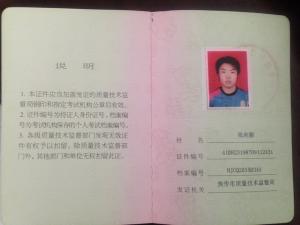 说 明
1. 本证件应当加盖发证的质量技术监
督局钢印和指定考试机构公章后有效。
2. 证件编号为持证人身份证号，档案编
号为考试机构保存的个人考试档案编号。
3. 各级质量技术监督部门发现无效证
件有权予以扣留，除质量技术监督部
门外，其他部门和单位无权扣留此证。
姓 名
证件编号
档案编号
发证机关 焦作市质量技术监督局